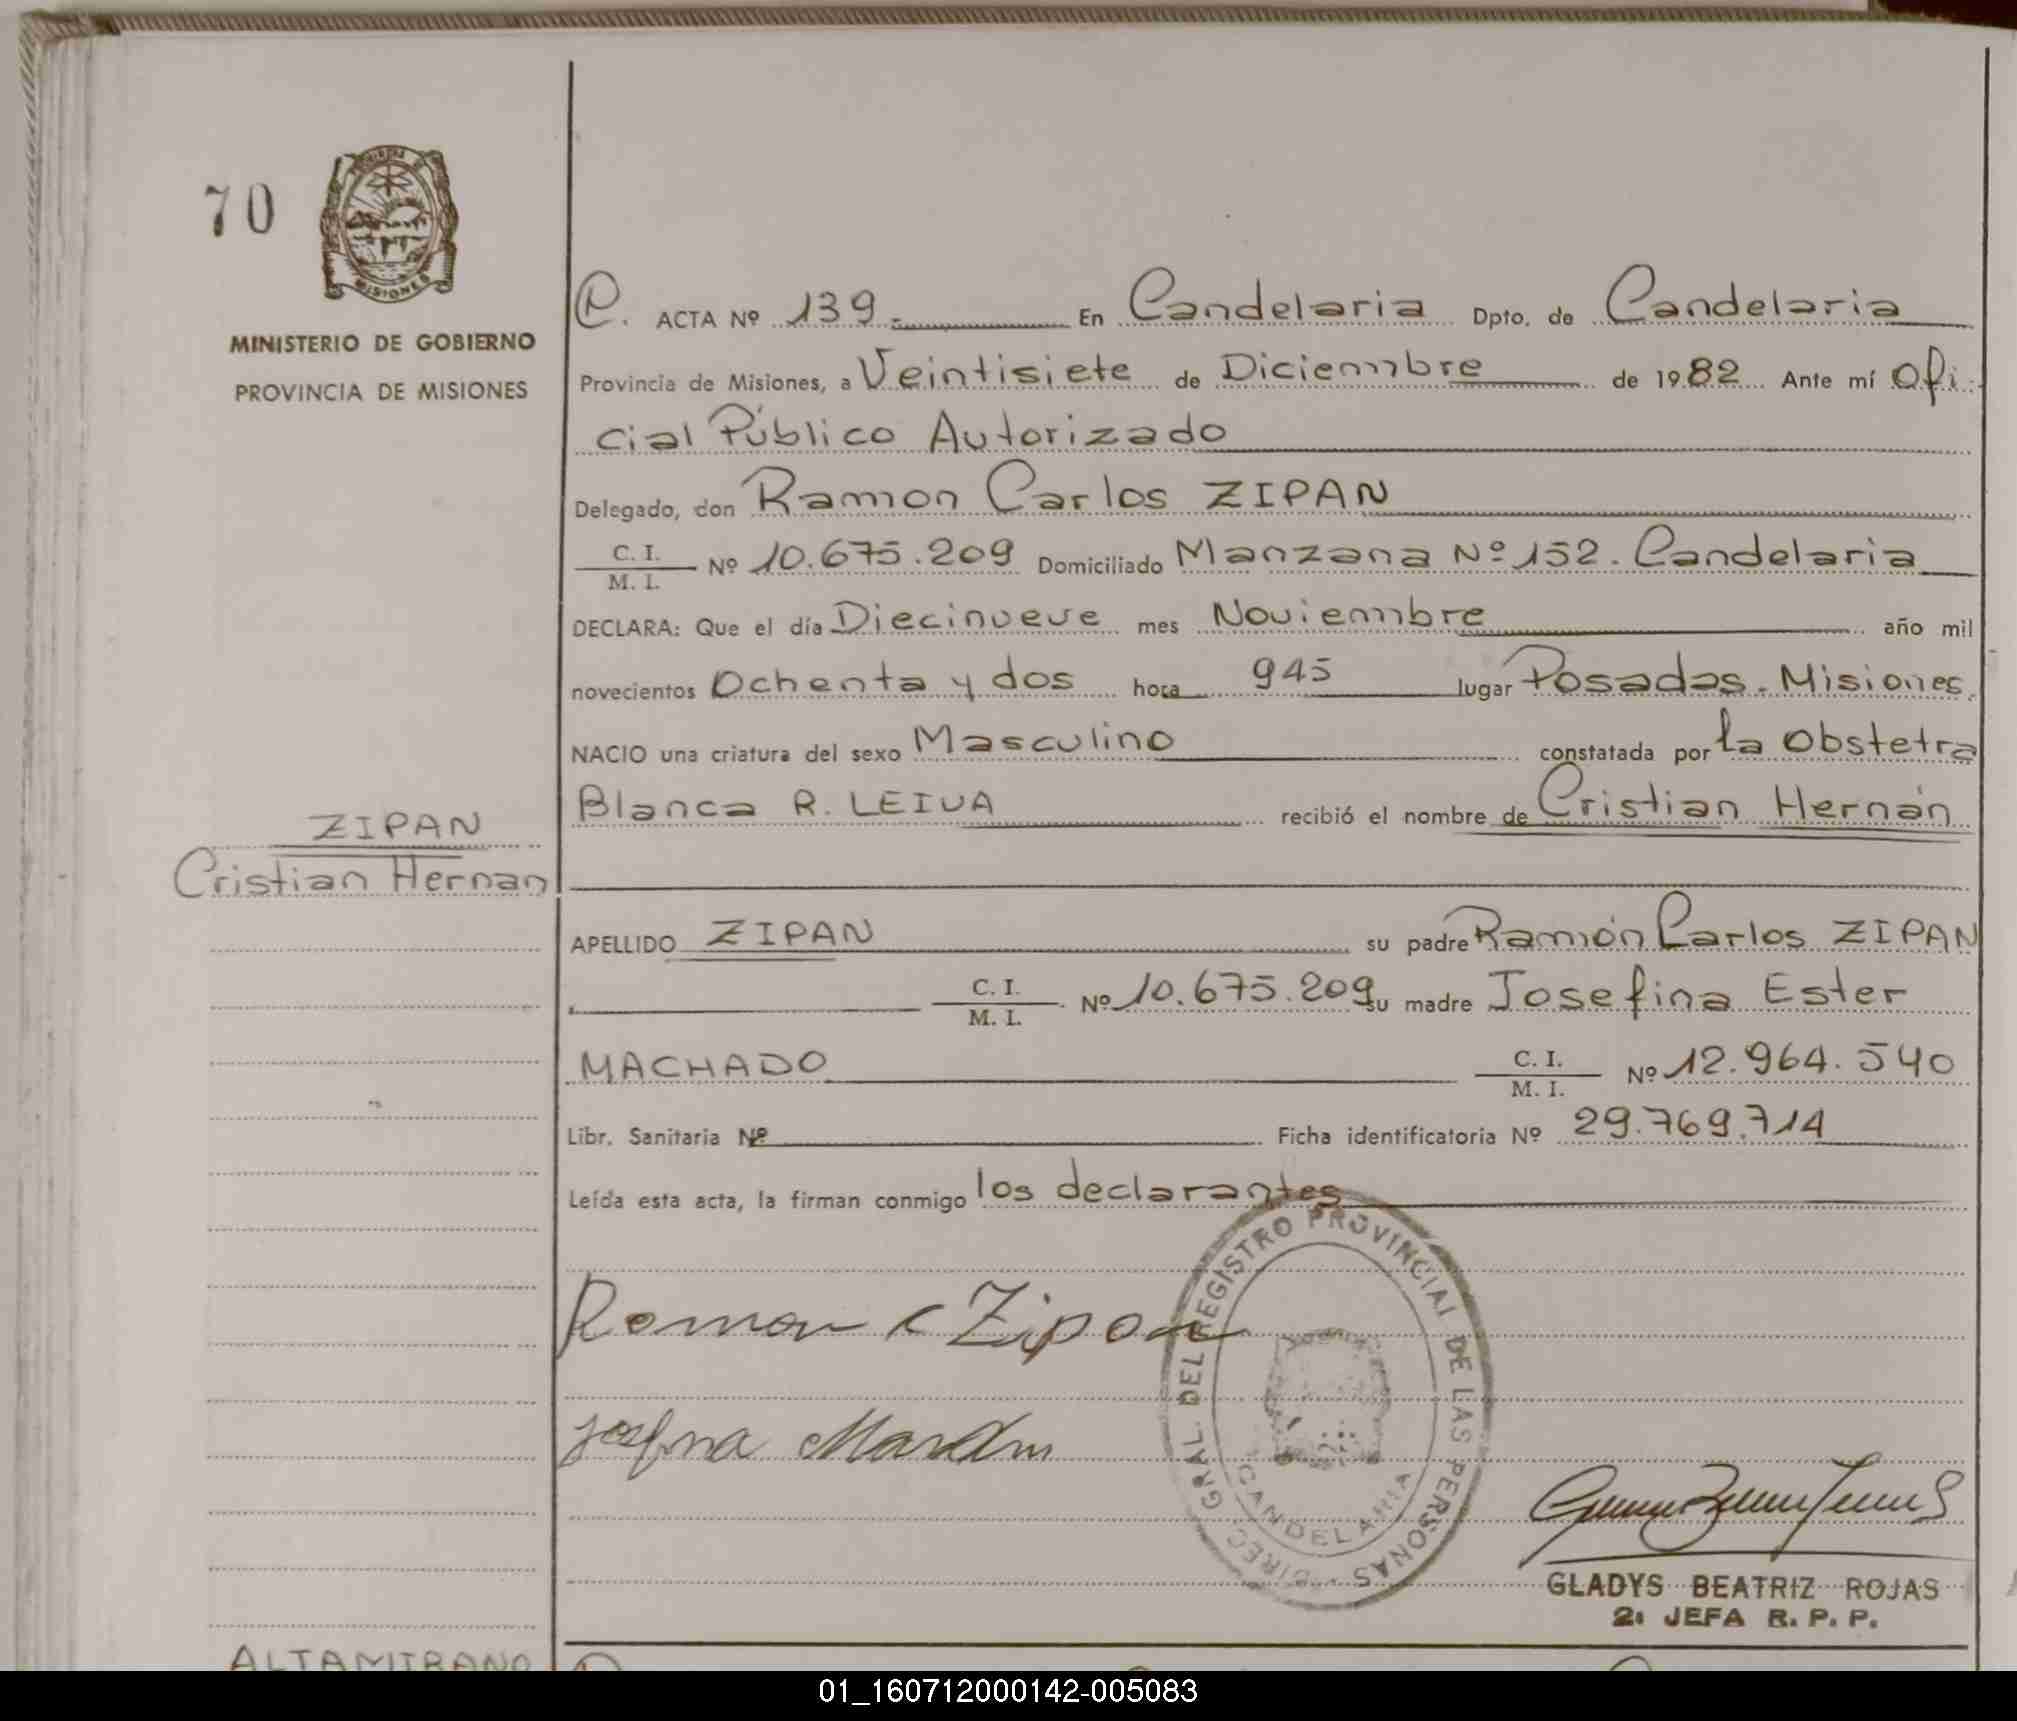 70
MISIONES
MINISTERIO DE GOBIERNO
PROVINCIA DE MISIONES
ACTA Nº 139.- En Candelaria Dpto. de Candelaria
Provincia de Misiones, a Veintisiete de Diciembre de 1982 Ante mí Ofi-
cial Público Autorizado
Delegado, don Ramon Carlos ZIPAN
C. I.
M. I.
Nº 10.675.209 Domiciliado Manzana Nº 152. Candelaria
DECLARA: Que el día Diecinueve mes Noviembre año mil
novecientos Ochenta y dos hora 945 lugar Posadas. Misiones.
NACIO una criatura del sexo Masculino constatada por la Obstetra
Blanca R. LEIVA recibió el nombre de Cristian Hernán
ZIPAN
Cristian Hernan
APELLIDO ZIPAN su padre Ramón Carlos ZIPAN
C. I.
M. I.
Nº 10.675.209 su madre Josefina Ester
MACHADO
C. I.
M. I.
Nº 12.964.540
Libr. Sanitaria Nº Ficha identificatoria Nº 29.769.714
Leída esta acta, la firman conmigo los declarantes
Ramon C Zipan
DIREC. GRAL. DEL REGISTRO PROVINCIAL DE LAS PERSONAS
CANDELARIA
GLADYS BEATRIZ ROJAS
2ª JEFA R. P. P.
ALTAMIRANO
01_160712000142-005083